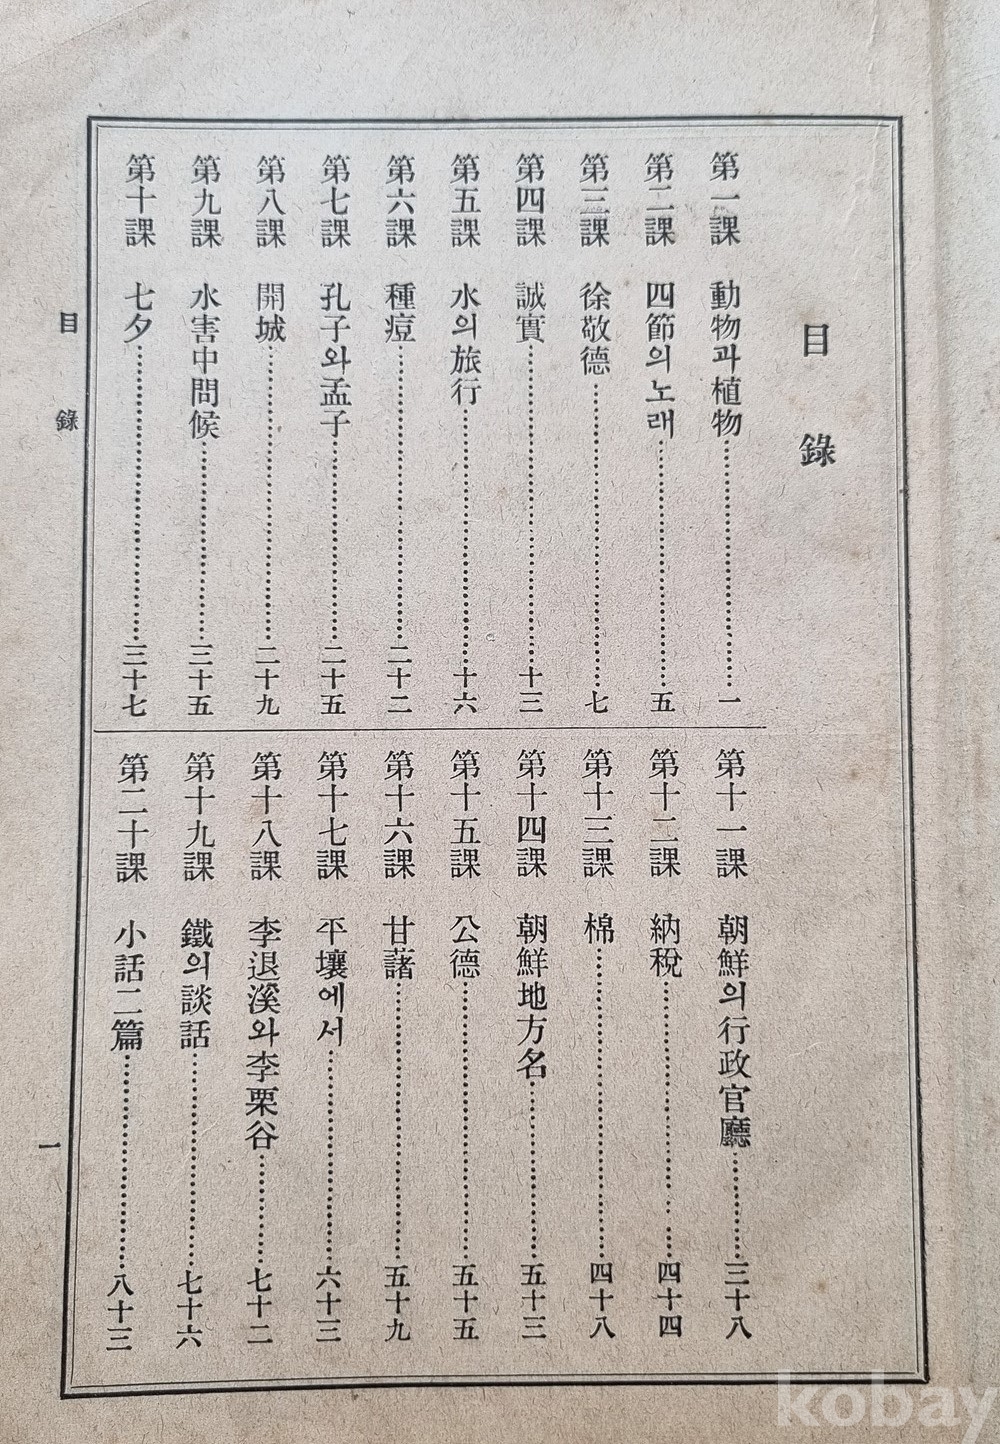 目錄
第一課 動物과植物……一
第二課 四節의노래……五
第三課 徐敬德……七
第四課 誠實……十三
第五課 水의旅行……十六
第六課 種痘……二十二
第七課 孔子와孟子……二十五
第八課 開城……二十九
第九課 水害中問候……三十五
第十課 七夕……三十七
第十一課 朝鮮의行政官廳……三十八
第十二課 納稅……四十四
第十三課 棉……四十八
第十四課 朝鮮地方名……五十三
第十五課 公德……五十五
第十六課 甘藷……五十九
第十七課 平壤에서……六十三
第十八課 李退溪와李栗谷……七十二
第十九課 鐵의談話……七十六
第二十課 小話二篇……八十三
目錄
一
kobay